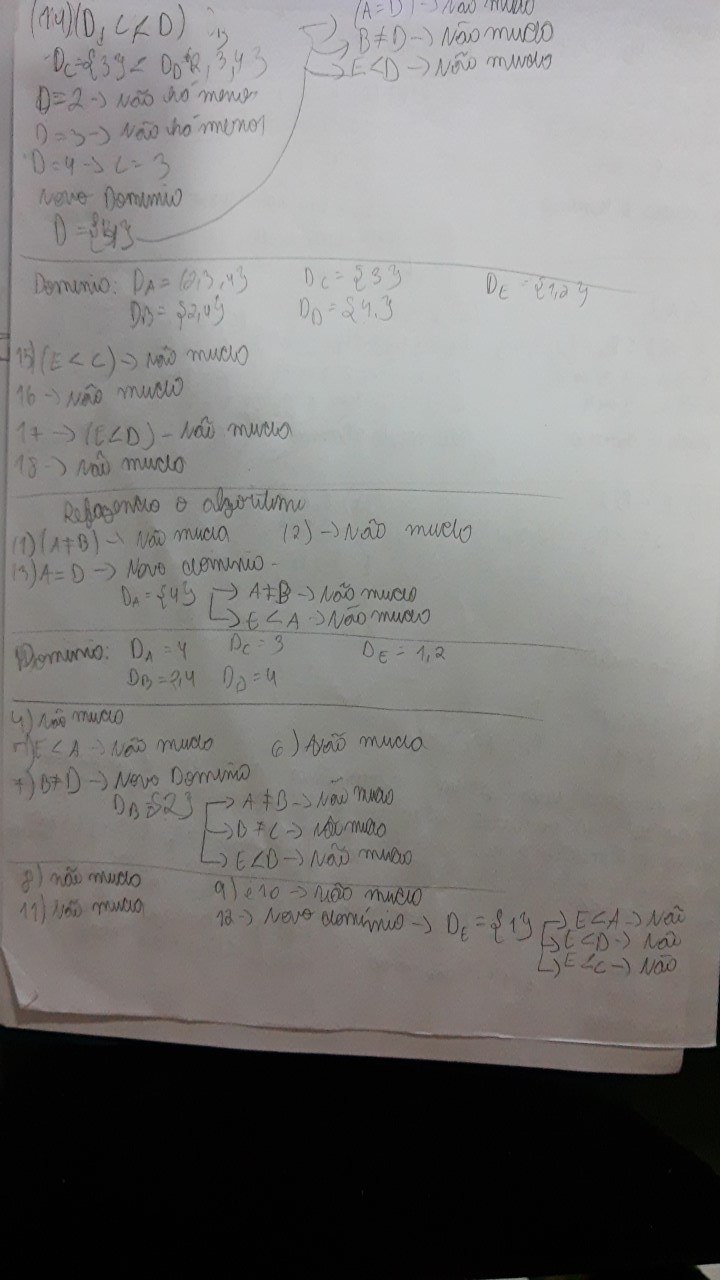 (14)(D, C < D)
(A=D) -> Não muda
B ≠ D -> Não muda
E < D -> Não muda
Dc={3} < DD {2, 3, 4}
D=2 -> Não há menor
D=3 -> Não há menor
D=4 -> C = 3
Novo Dominio
D = {4}
Dominio: DA = {2,3,4} DC = {3} DE = {1,2}
DB = {2,4} DD = {4}
15)(E < C) -> Não muda
16 -> Não muda
17 -> (E<D) - Não muda
18 -> Não muda
Refazendo o algoritimo
(1)(A≠B) -> Não muda (2) -> Não muda
(3) A=D -> Novo dominio
DA = {4} -> A≠B -> Não muda
-> E < A -> Não muda
Dominio: DA = 4 DC = 3 DE = 1,2
DB = 2,4 DD = 4
4) Não muda
5) E < A -> Não muda 6) Não muda
7) B≠D -> Novo Dominio
DB = {2} -> A≠B -> Não muda
-> B≠C -> Não muda
-> E<B -> Não muda
8) não muda 9) e 10 -> Não muda
11) Não muda 12 -> Novo domínio -> DE = {1} -> E<A -> Não
-> E<D -> Não
-> E<C -> Não